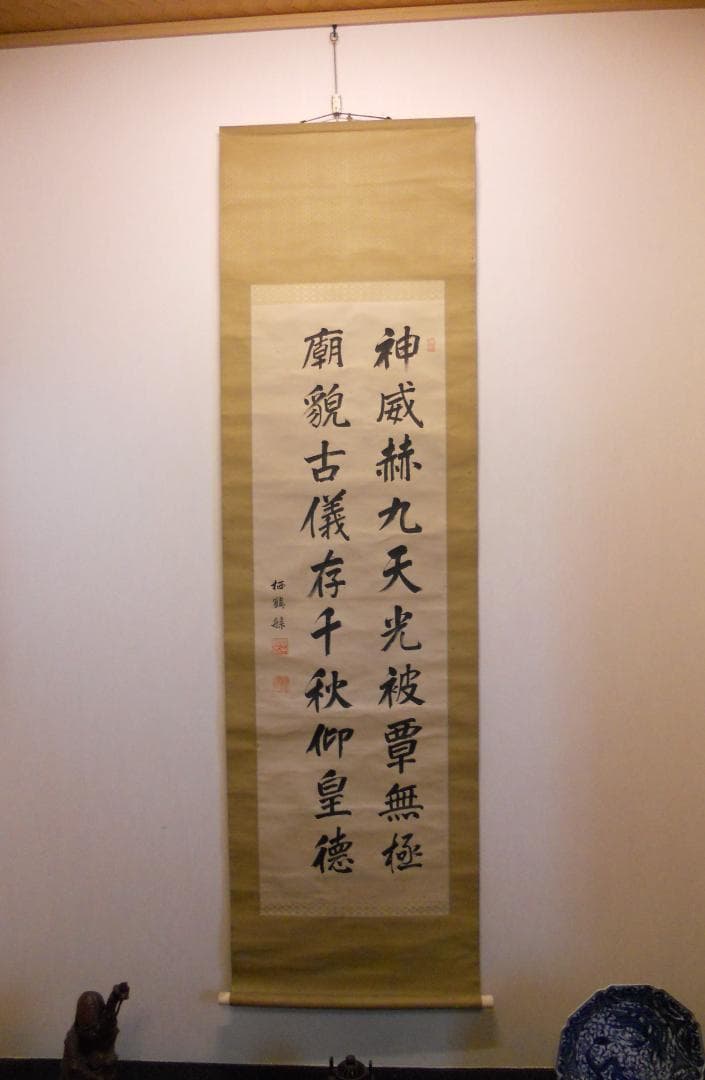 神威赫九天光被覃無極
廟貌古儀存千秋仰皇德